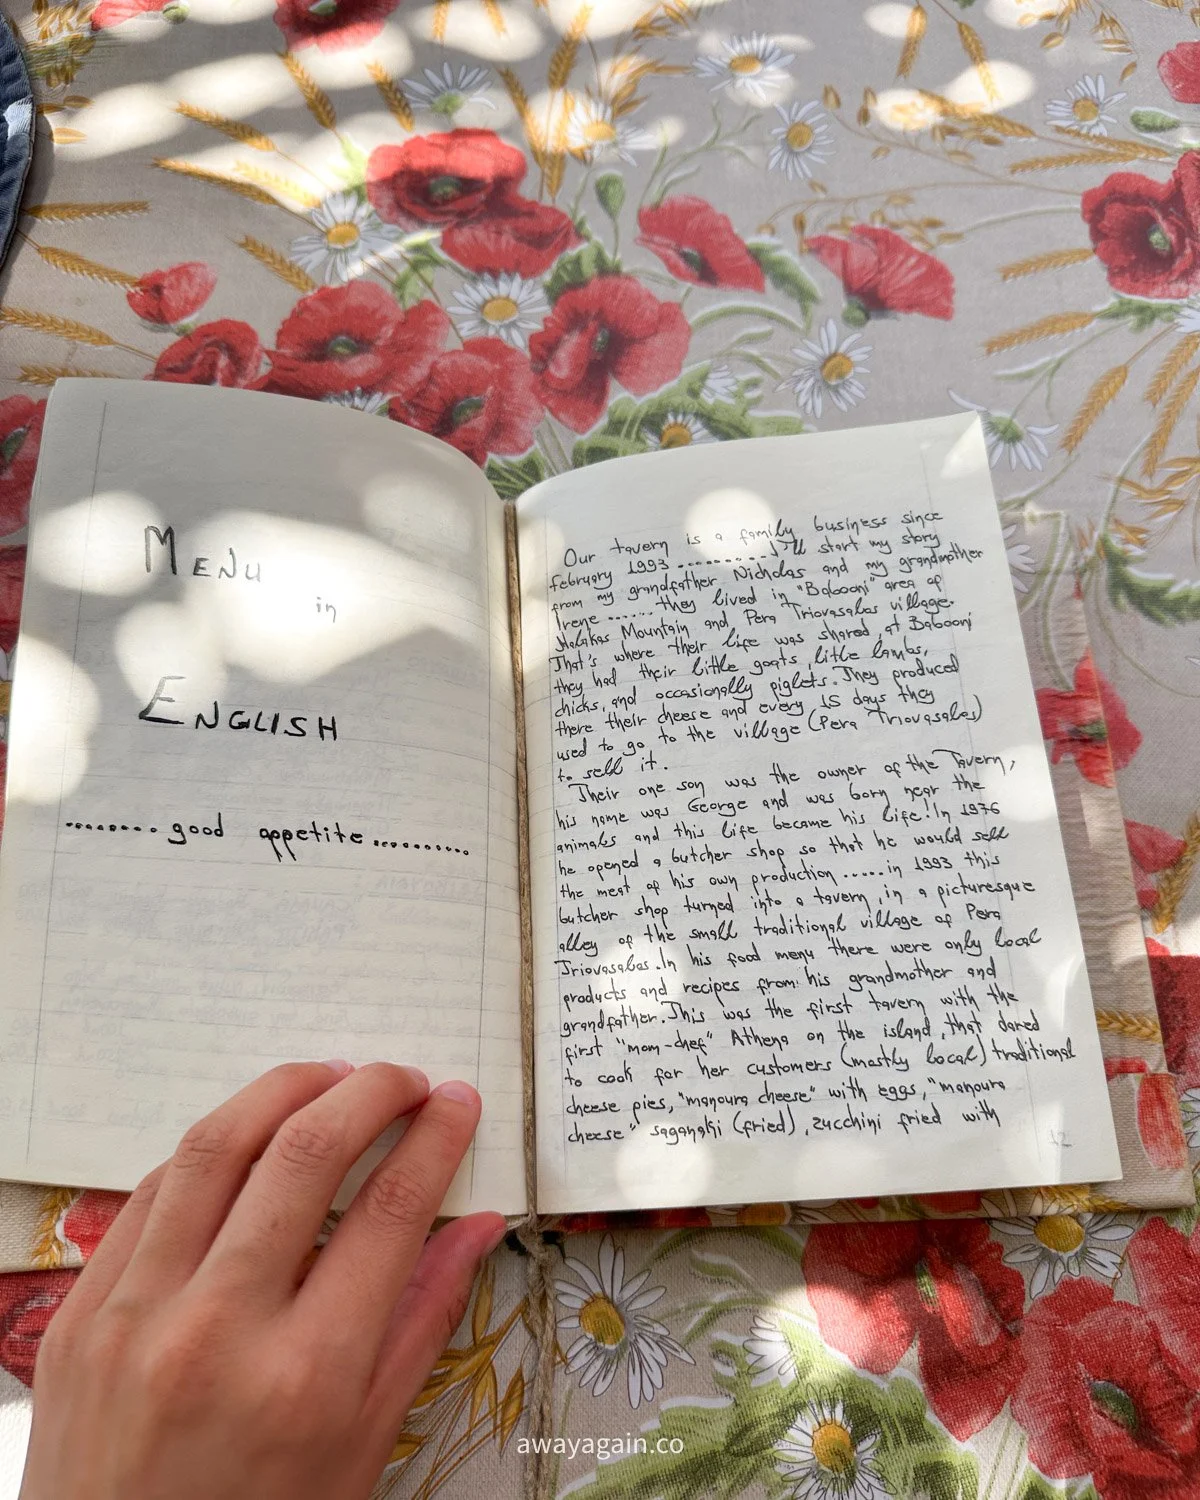 MENU
in
ENGLISH
........ good appetite ..........
Our tavern is a family business since
february 1993 .......... I'll start my story
from my grandfather Nicholas and my grandmother
Irene ...... they lived in "Babooni" area of
Halakas Mountain and Pera Triovasalos village.
That's where their life was shared, at Babooni
they had their little goats, litle lambs,
chicks, and occasionally piglets. They produced
there their cheese and every 15 days they
used to go to the village (Pera Triovasalos)
to sell it.
Their one son was the owner of the Tavern,
his name was George and was born near the
animals and this life became his life! In 1976
he opened a butcher shop so that he would sell
the meat of his own production ..... in 1993 this
butcher shop turned into a tavern, in a picturesque
alley of the small traditional village of Pera
Triovasalos. In his food menu there were only local
products and recipes from his grandmother and
grandfather. This was the first tavern with the
first "mom-chef" Athena on the island, that dared
to cook for her customers (mostly local) traditional
cheese pies, "manoura cheese" with eggs, "manoura
cheese" saganaki (fried), zucchini fried with
12
awayagain.co